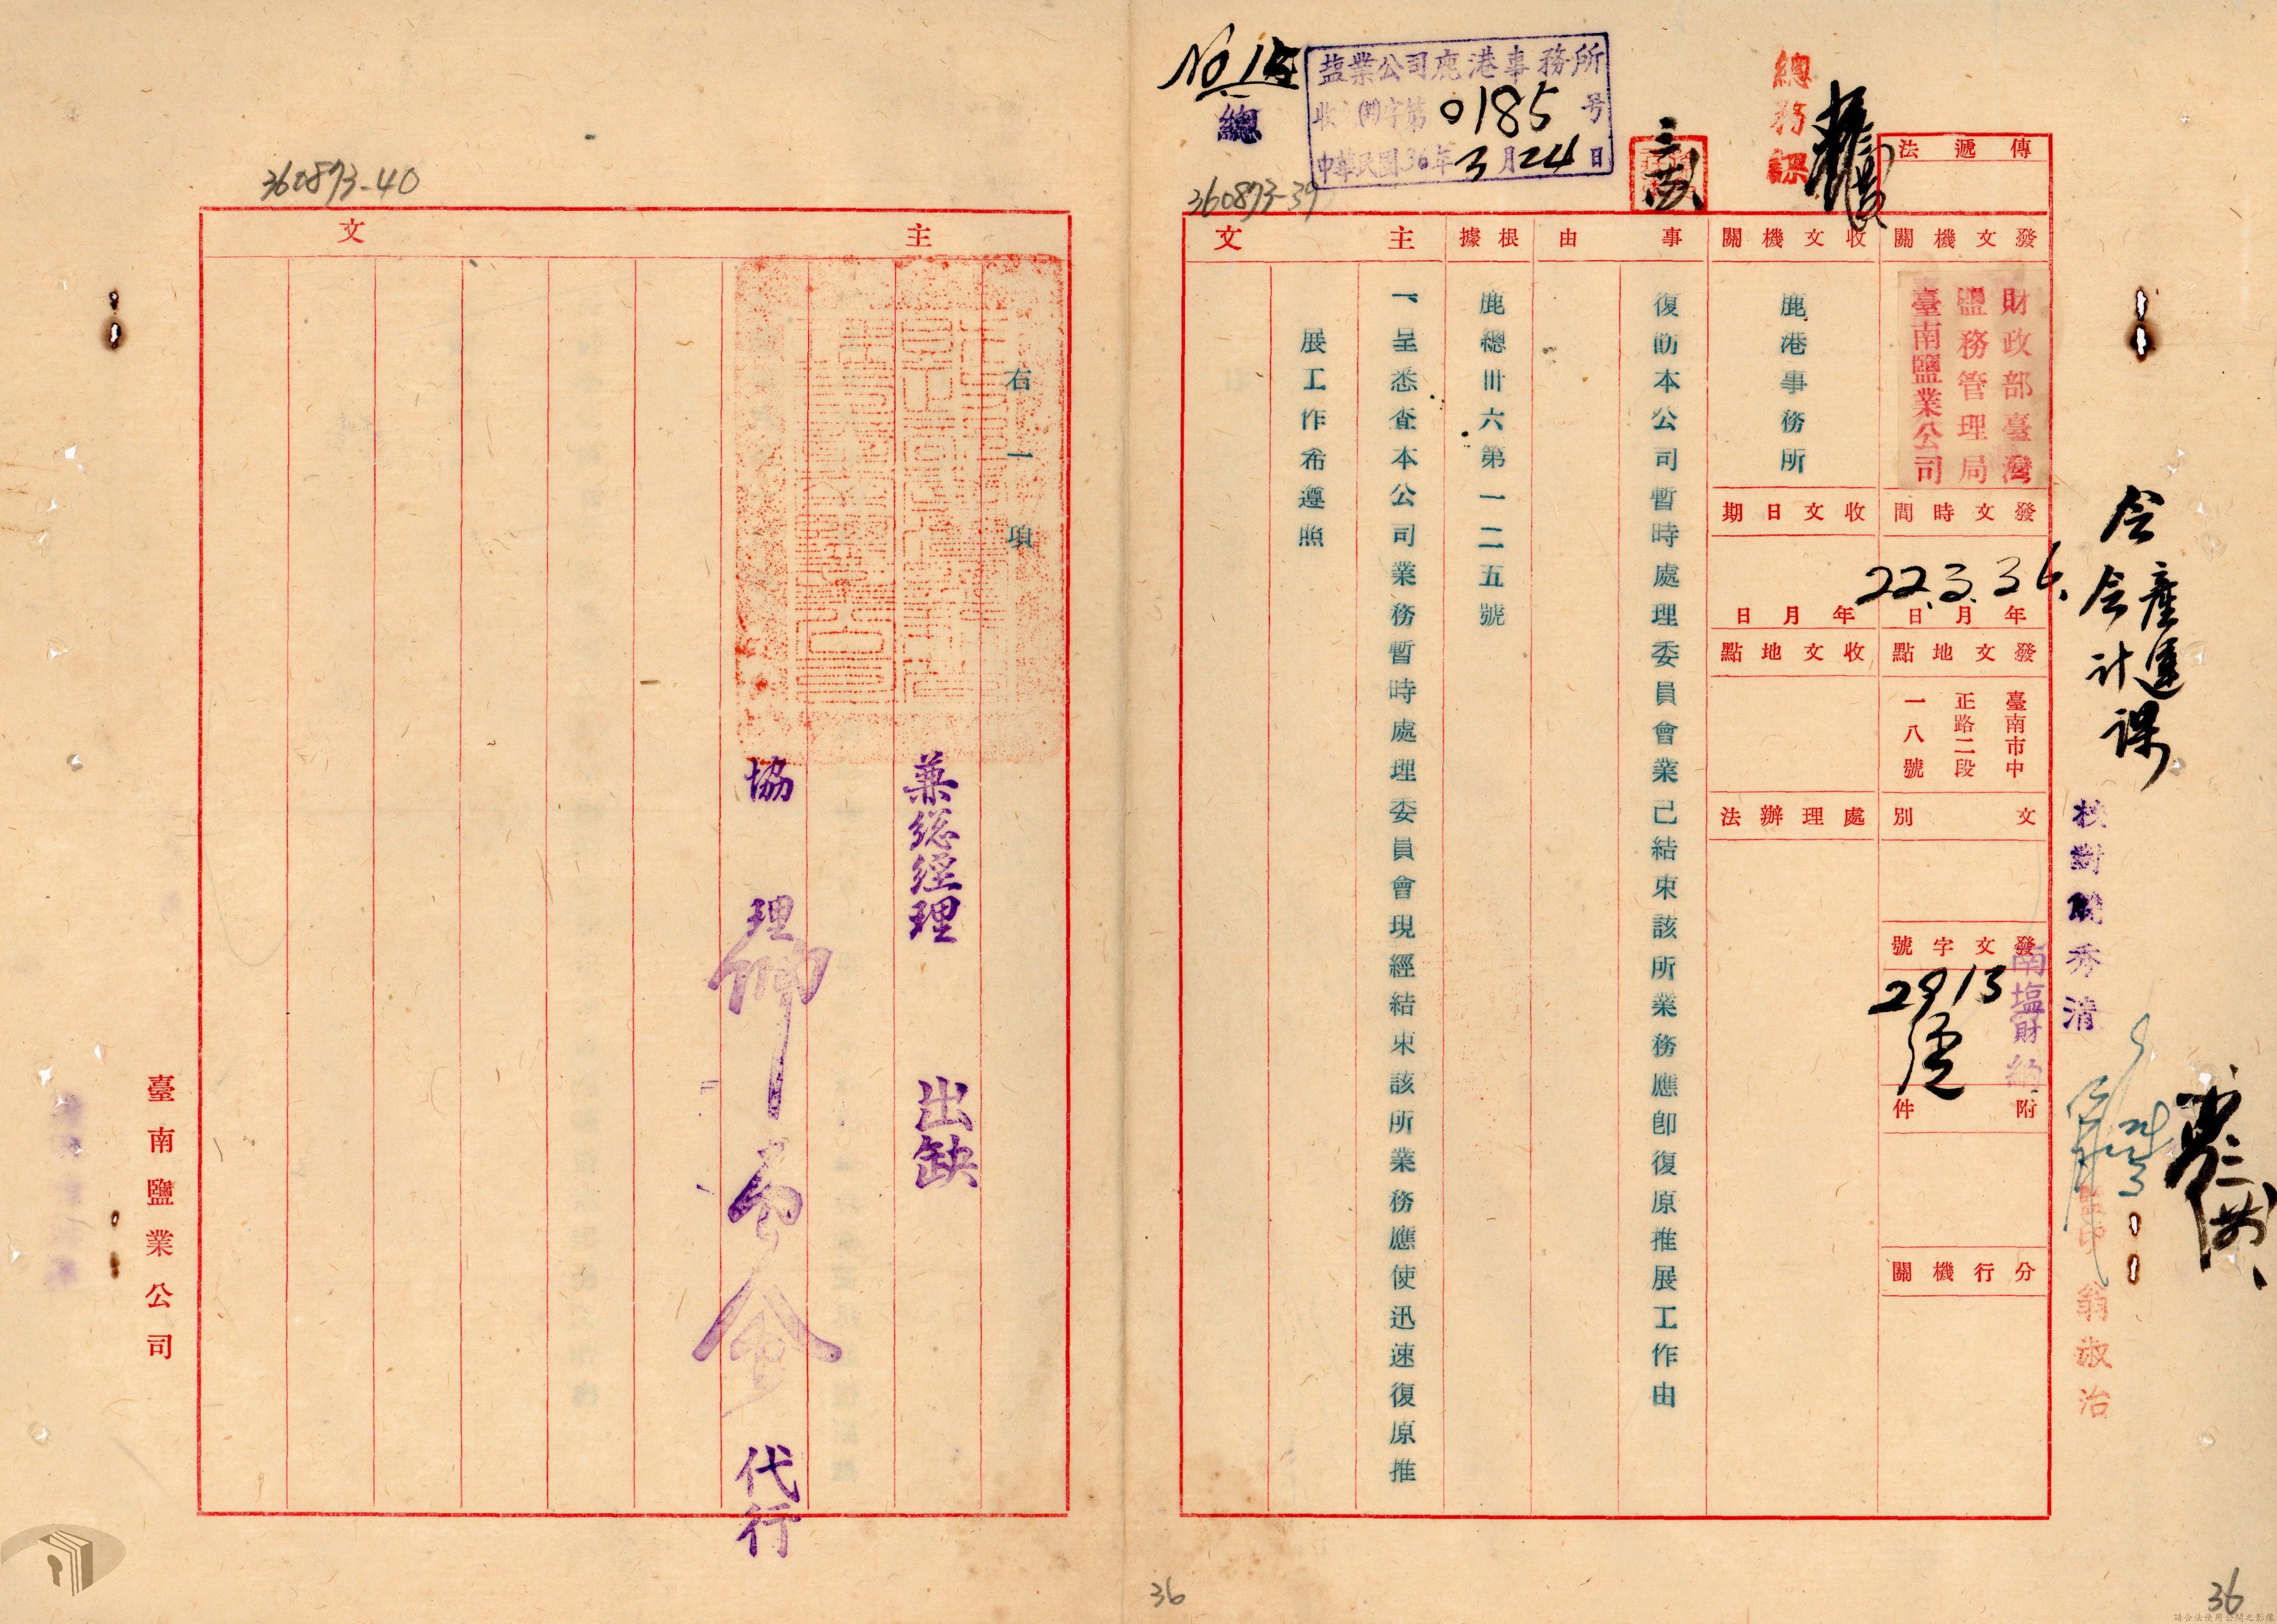 No 15
總
塩業公司鹿港事務所
收 字第0185号
中華民國36年3月24日
總務課
360873-39
傳遞法
發文機關
財政部臺灣
鹽務管理局
臺南鹽業公司
收文機關
鹿港事務所
發文時間
36.3.22
年月日
收文日期
年月日
發文地點
臺南市中
正路二段
一八號
收文地點
文別
處理辦法
發文字號
南塩財
2913
附件
分行機關
事由
復飭本公司暫時處理委員會業已結束該所業務應卽復原推展工作由
根據
鹿總卅六第一二五號
主文
一、呈悉查本公司業務暫時處理委員會現經結束該所業務應使迅速復原推
展工作希遵照
會產運
會計課
校對 秀清
監印 翁淑治
36
36
360873-40
主文
右一項
兼総經理 出缺
協理 代行
臺南鹽業公司
請合法使用公開之影像